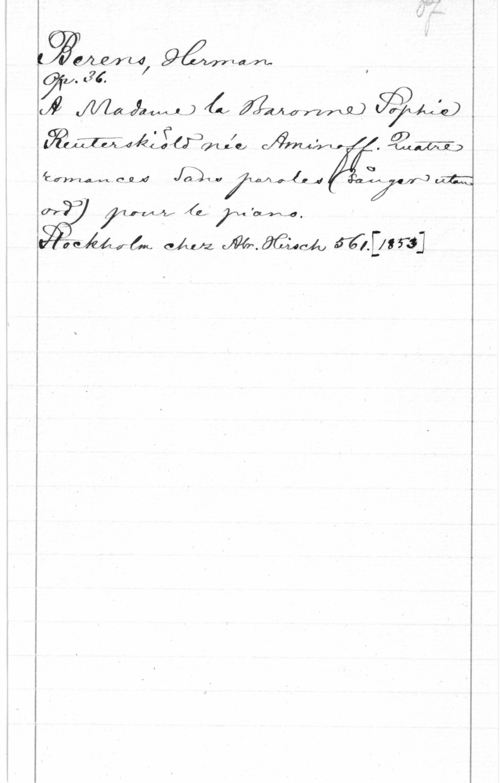 Berens, Herman
Op. 36.
A Madame la Baronne Sophie
Reuterskiöld née Aminoff. Quatre
romances sans paroles (Sånger utan
ord) pour le piano.
Stockholm chez Abr. Hirsch 561. [1853]